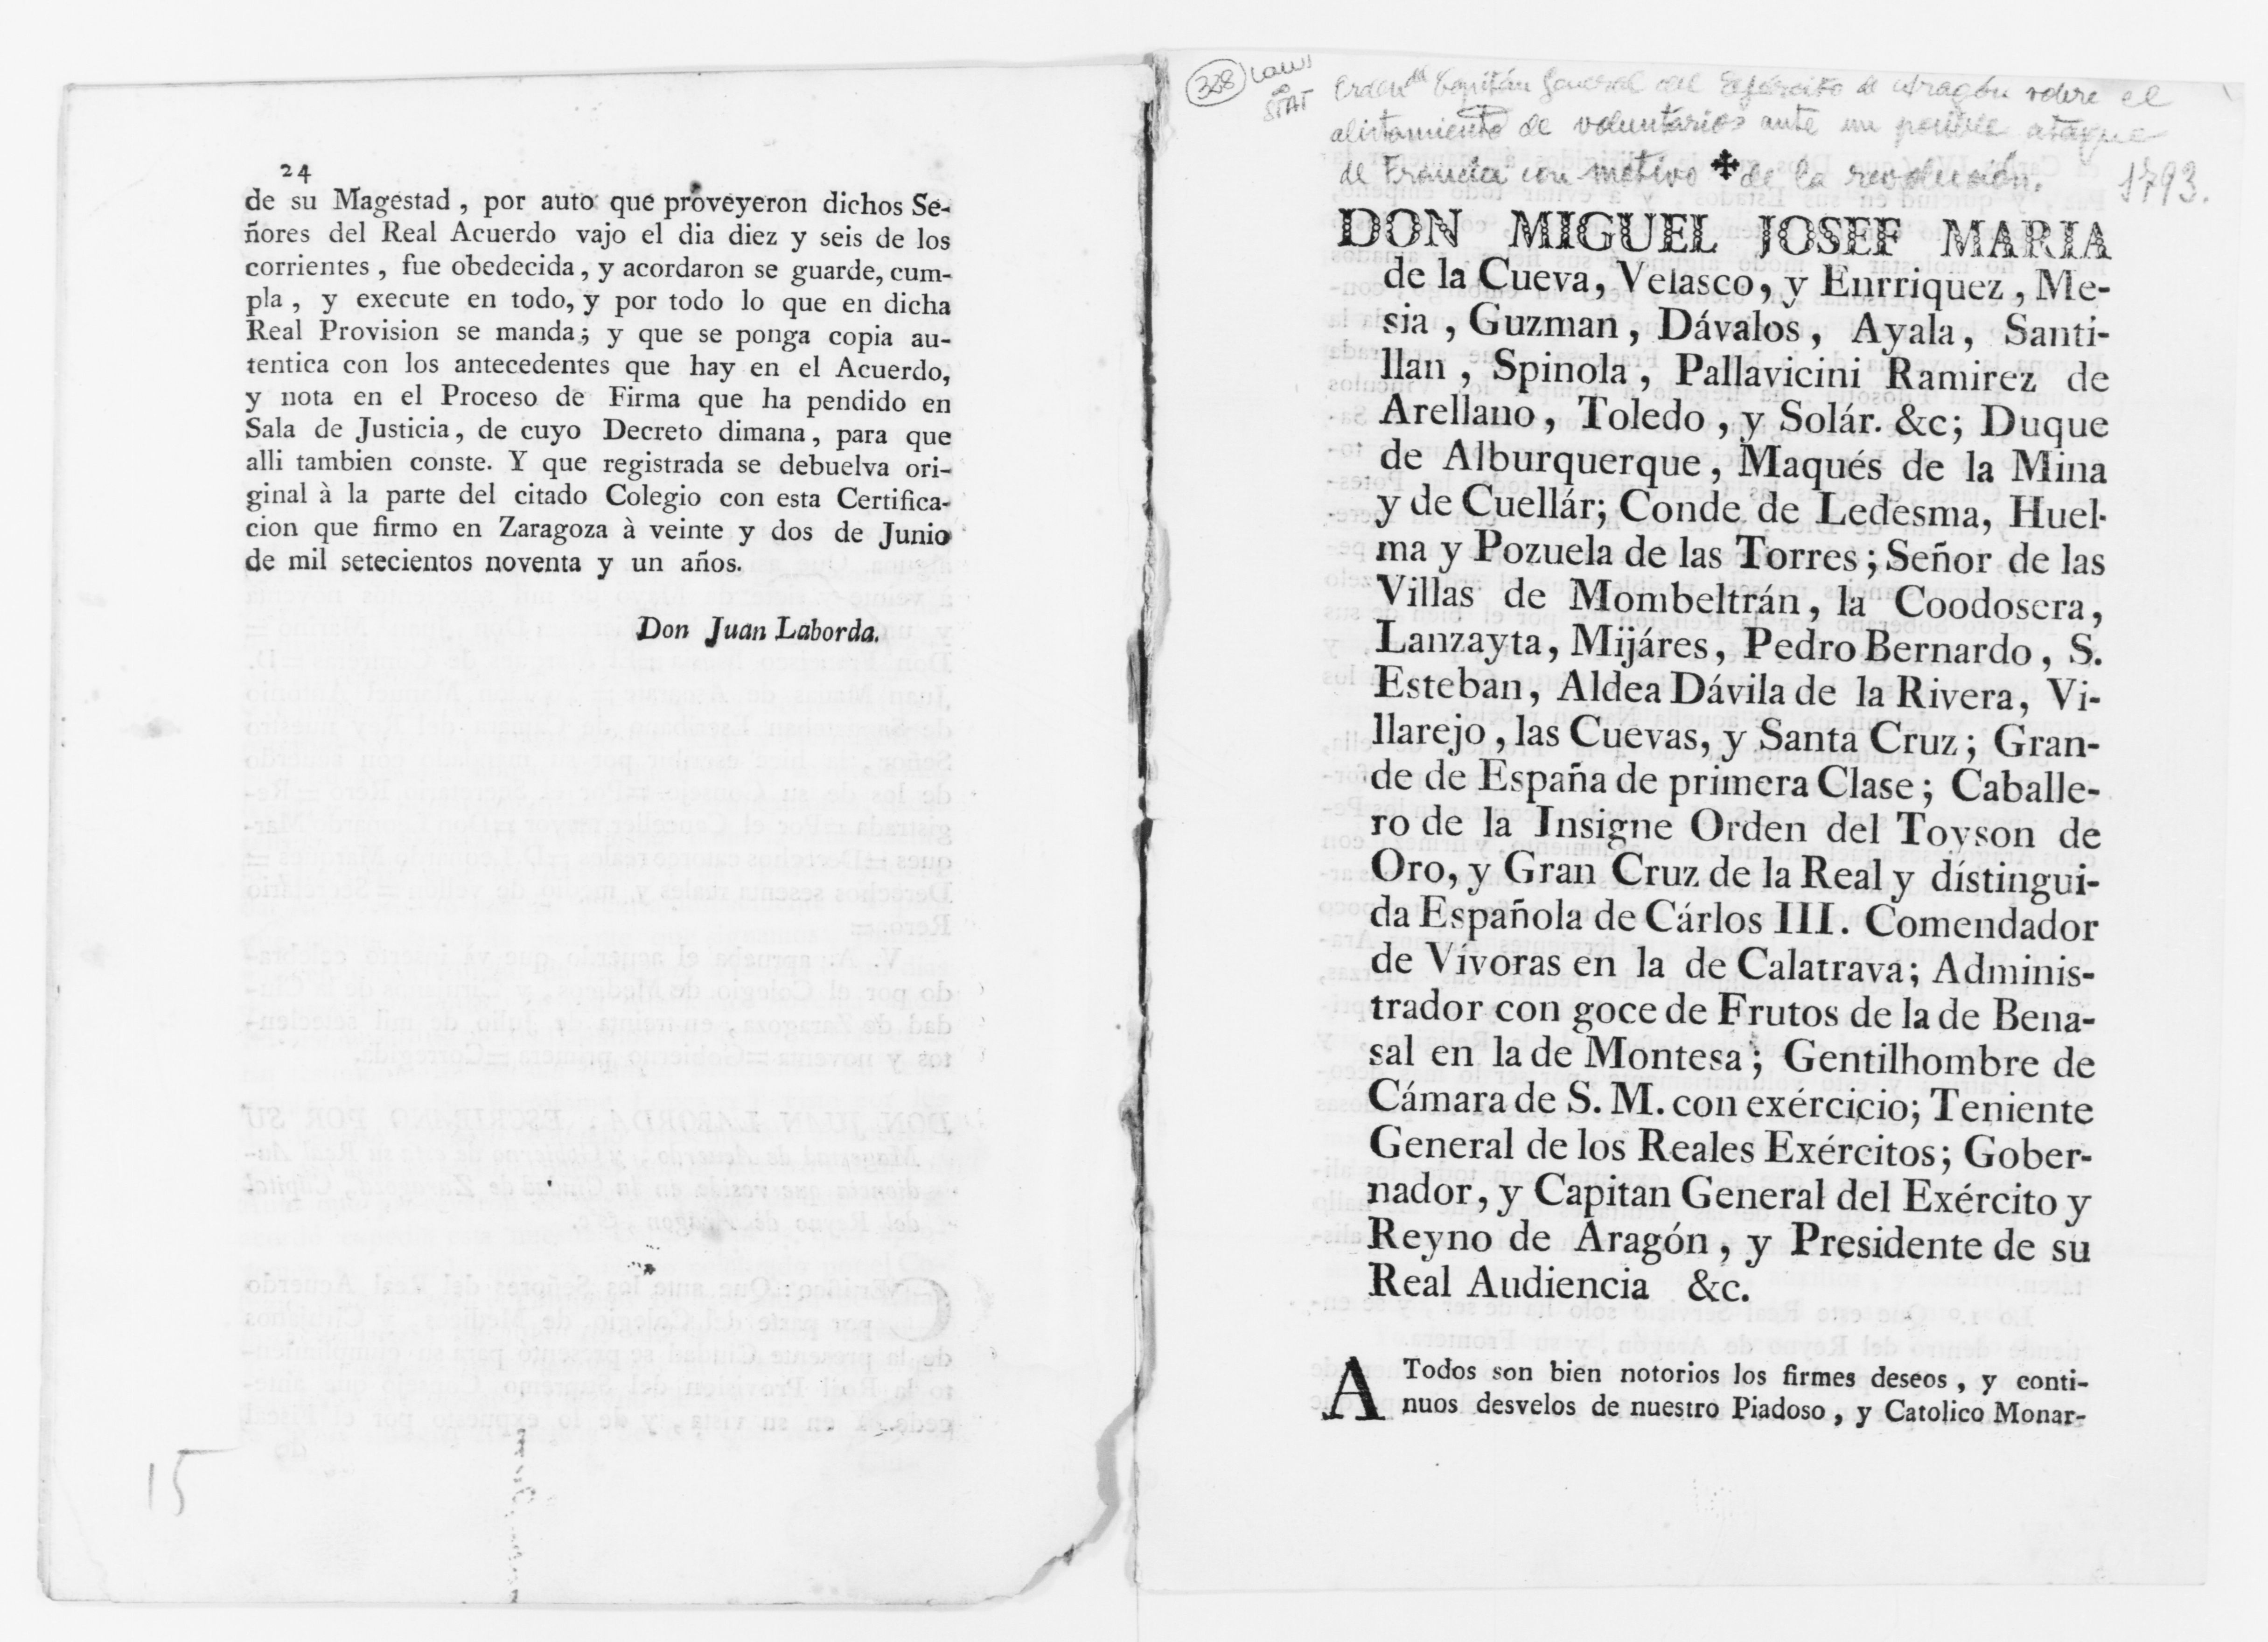 24
de su Magestad , por auto que proveyeron dichos Se-
ñores del Real Acuerdo vajo el dia diez y seis de los
corrientes , fue obedecida , y acordaron se guarde, cum-
pla , y execute en todo, y por todo lo que en dicha
Real Provision se manda; y que se ponga copia au-
tentica con los antecedentes que hay en el Acuerdo,
y nota en el Proceso de Firma que ha pendido en
Sala de Justicia, de cuyo Decreto dimana, para que
alli tambien conste. Y que registrada se debuelva ori-
ginal à la parte del citado Colegio con esta Certifica-
cion que firmo en Zaragoza à veinte y dos de Junio
de mil setecientos noventa y un años.
Don Juan Laborda.
15
328 Laws
STAT
Orden del Capitán General del Ejército de Aragón sobre el
alistamiento de voluntarios ante un posible ataque
de Francia con motivo ✤ de la revolución. 1793.
DON MIGUEL JOSEF MARIA
de la Cueva, Velasco, y Enrriquez, Me-
sia , Guzman , Dávalos , Ayala , Santi-
llan , Spinola , Pallavicini Ramirez de
Arellano, Toledo, y Solár. &c; Duque
de Alburquerque, Maqués de la Mina
y de Cuellár; Conde de Ledesma, Huel-
ma y Pozuela de las Torres; Señor de las
Villas de Mombeltrán, la Coodosera,
Lanzayta, Mijáres, Pedro Bernardo, S.
Esteban, Aldea Dávila de la Rivera, Vi-
llarejo, las Cuevas, y Santa Cruz; Gran-
de de España de primera Clase; Caballe-
ro de la Insigne Orden del Toyson de
Oro, y Gran Cruz de la Real y dístingui-
da Española de Cárlos III. Comendador
de Vívoras en la de Calatrava; Adminis-
trador con goce de Frutos de la de Bena-
sal en la de Montesa; Gentilhombre de
Cámara de S. M. con exércicio; Teniente
General de los Reales Exércitos; Gober-
nador, y Capitan General del Exército y
Reyno de Aragón, y Presidente de su
Real Audiencia &c.
A Todos son bien notorios los firmes deseos , y conti-
nuos desvelos de nuestro Piadoso , y Catolico Monar-